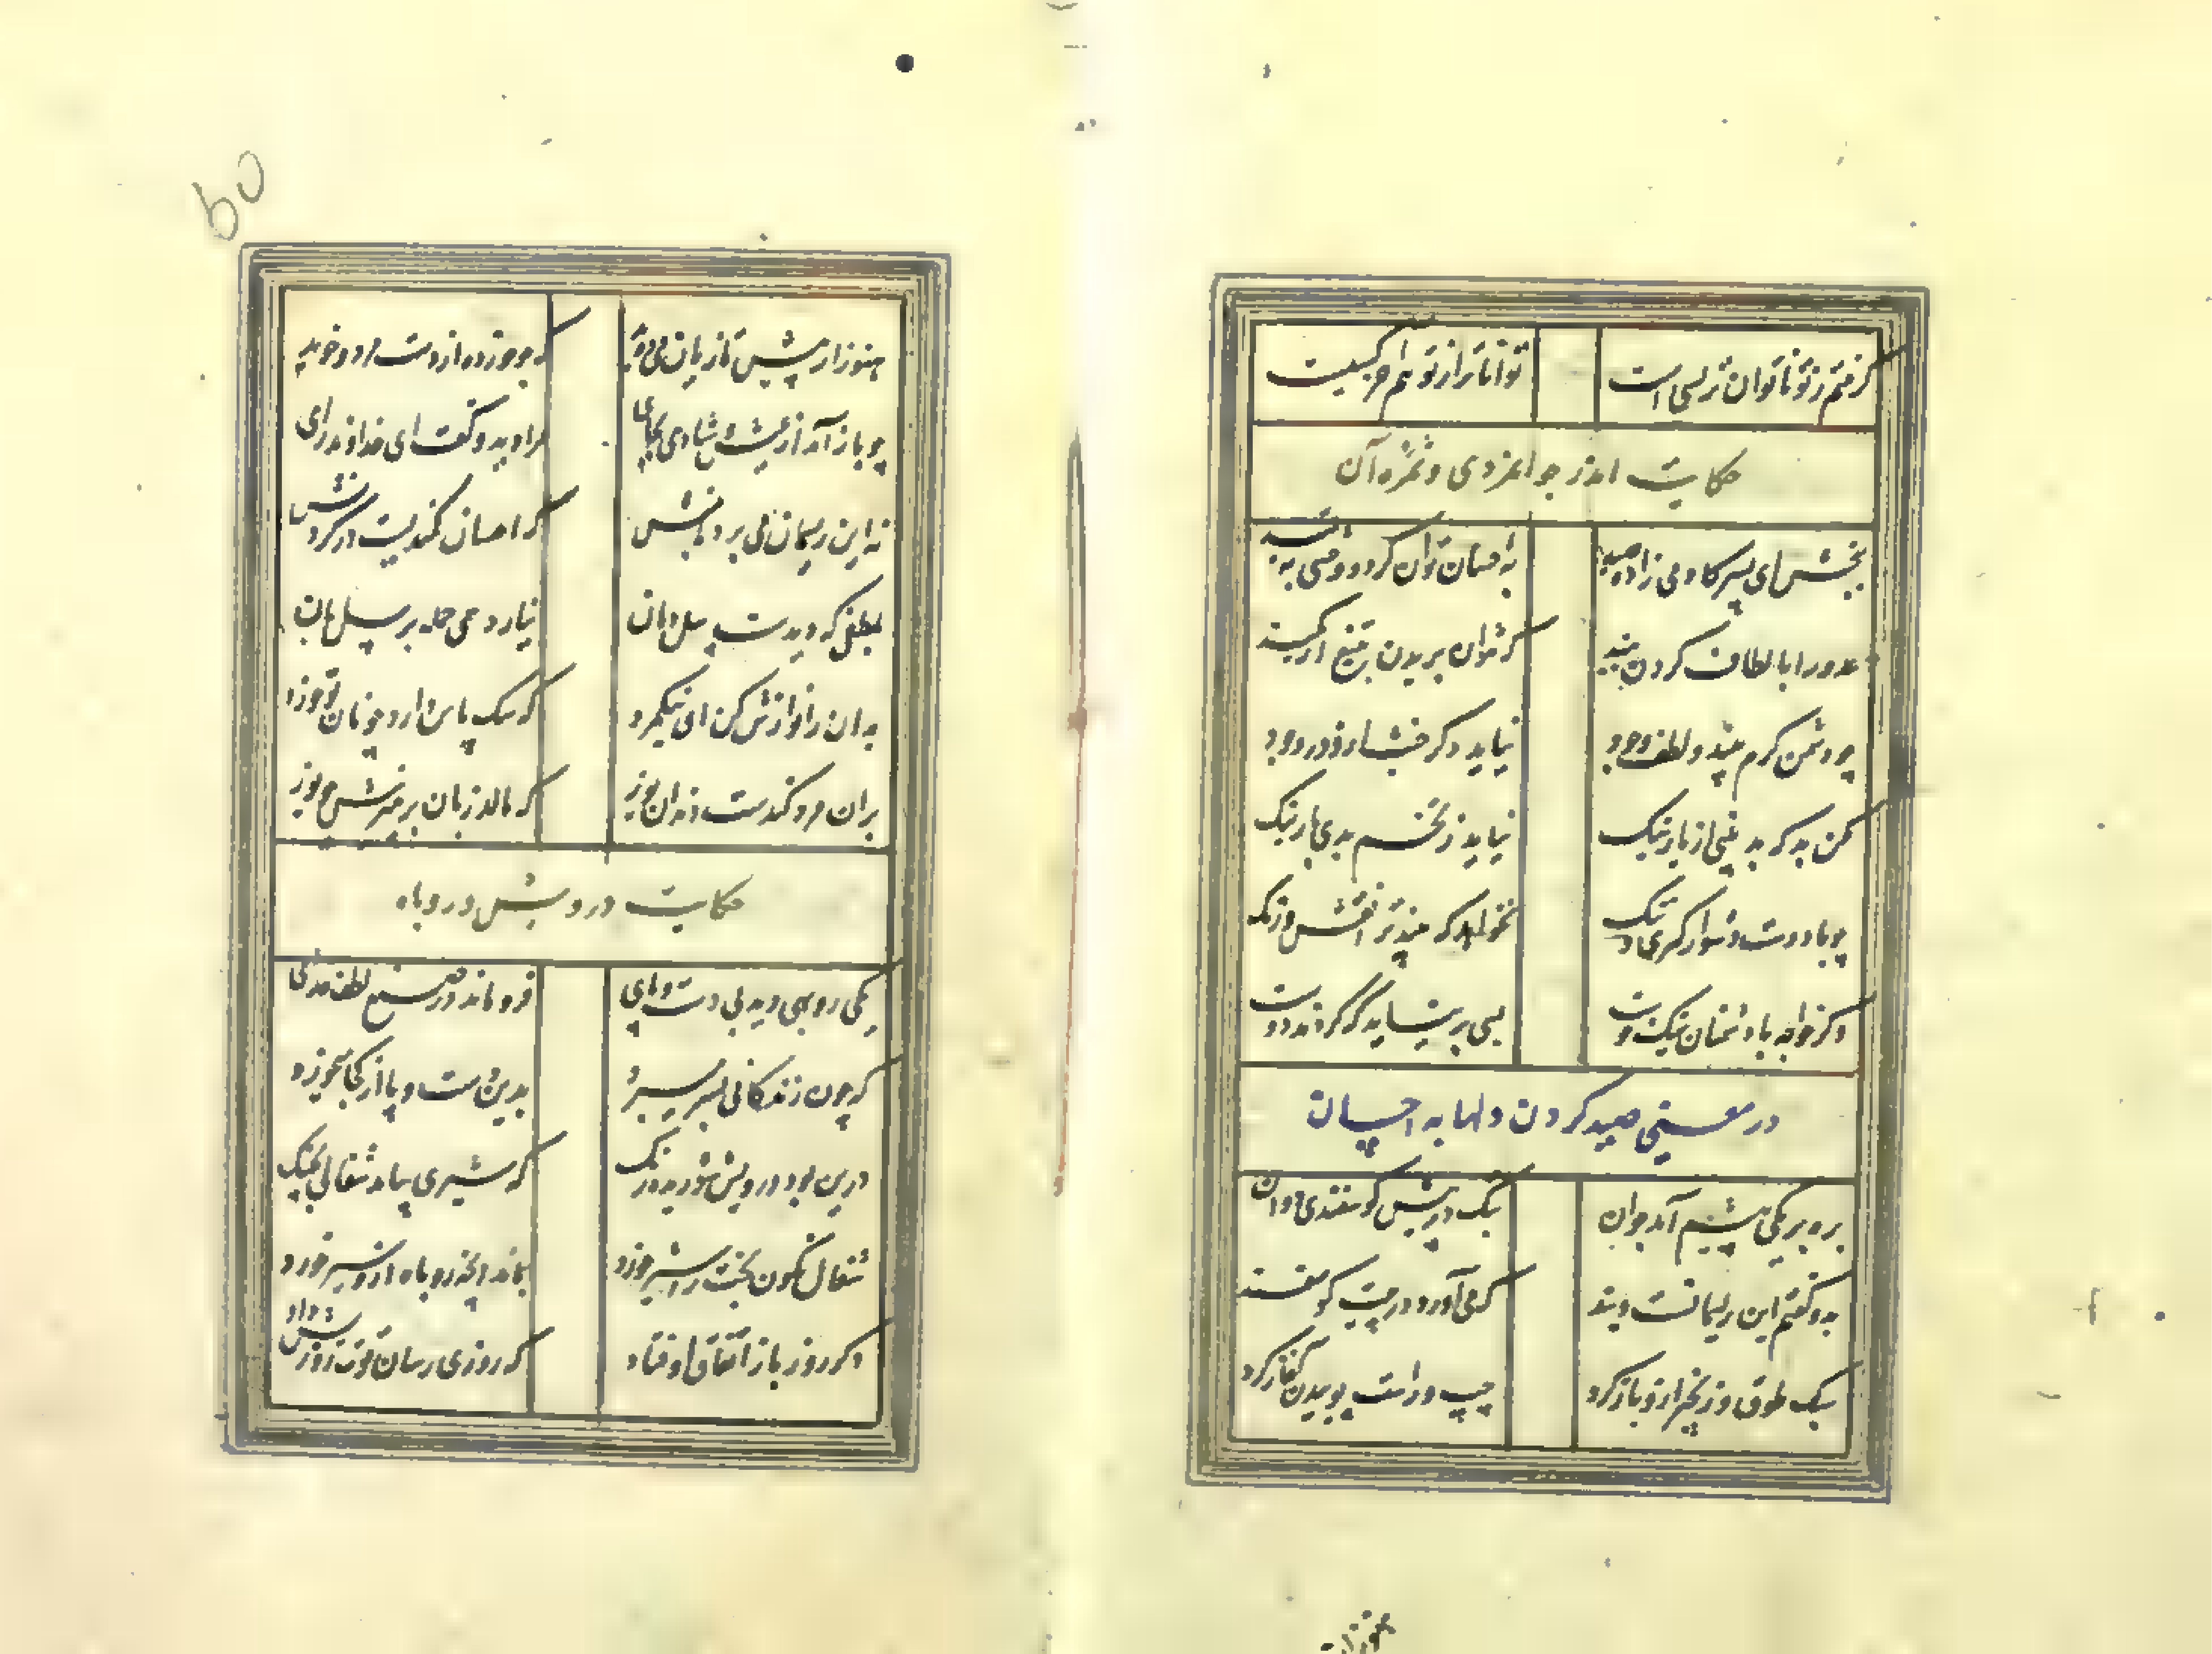 گرفتم ز تو ناتوان تر بسی است
تواناتر از تو هم آخر کسیست
حکایت اندر جوانمردی و ثمره آن
ببخش ای پسر کادمی زاده صید
به احسان توان کرد و وحشی به قید
عدو را بالطاف گردن ببند
که نتوان بریدن به تیغ این کمند
چو دشمن کرم بیند و لطف وجود
نیاید دگر خبث ازو در وجود
مکن بد که بد بینی از یار نیک
نیاید ز تخم بدی بار نیک
چو با دوست دشوار گیری و تنک
نخواهد که بیند ترا نقش و رنک
وگر خواجه با دشمنان نیک خوست
بسی بر نیاید که گردند دوست
در معنی صید کردن دلها به احسان
به ره بر یکی پیشم آمد جوان
بتک در پیش گوسفندی دوان
بدو گفتم این ریسمانست و بند
که می آورد در پیت گوسفند
سبک طوق و زنجیر ازو باز کرد
چپ و راست پوییدن آغاز کرد
60
هنوز از پیش تازیان می دوید
که جو خورده از دست مرد و خوید
چو باز آمد از عیش و شادی بجای
مرا دید و گفت ای خداوند رای
نه این ریسمان می برد با منش
که احسان کمندیست در گردنش
بلطفی که دیدست پیل دمان
نیارد همی حمله بر پیلبان
بدان را نوازش کن ای نیکمرد
که سک پاس دارد چو نان تو خورد
بر آن مرد کندست دندان یوز
که مالد زبان بر پنیرش دو روز
حکایت درویش و روباه
یکی روبهی دید بی دست و پای
فرو ماند در صنع لطف خدای
که چون زندگانی بسر میبرد
بدین دست و پا از کجا میخورد
درین بود درویش شوریده رنک
که شیری بیامد شغالی بچنک
شغال نگون بخت را شیر خورد
بماند آنچه روباه ازو سیر خورد
دگر روز باز اتفاق اوفتاد
که روزی رسان قوت روزش بداد